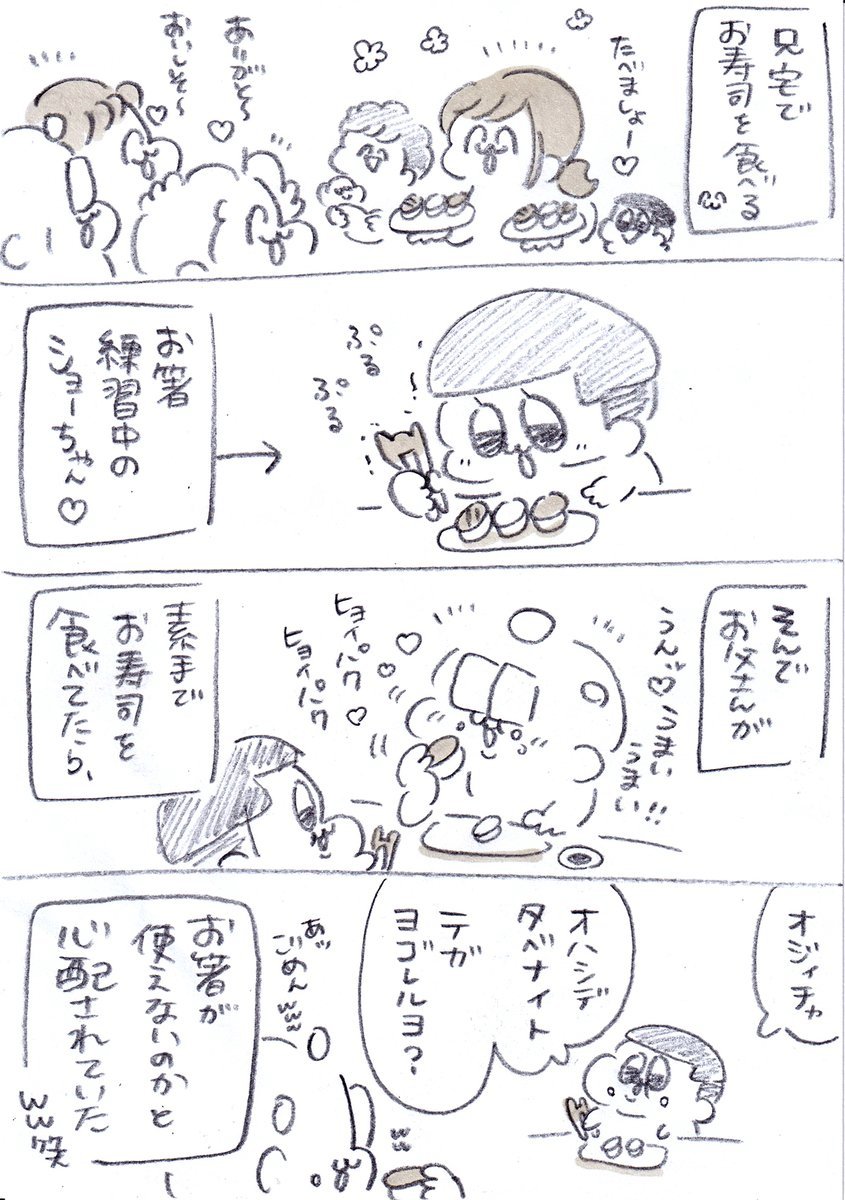 兄宅で
お寿司を食べる
たべましょー♡
ありがと~♡
おいしそ~♡
ぷる
ぷる
お箸
練習中の
ショーちゃん♡
そんで
お父さんが
うんっ♡うまい
うまい!!
ヒョイパク
ヒョイパク
素手で
お寿司を
食べてたら、
オジィチャ
オハシデ
タベナイト
テガ
ヨゴレルヨ?
あっ
ごめんwww
お箸が
使えないのかと
心配されていた
www笑